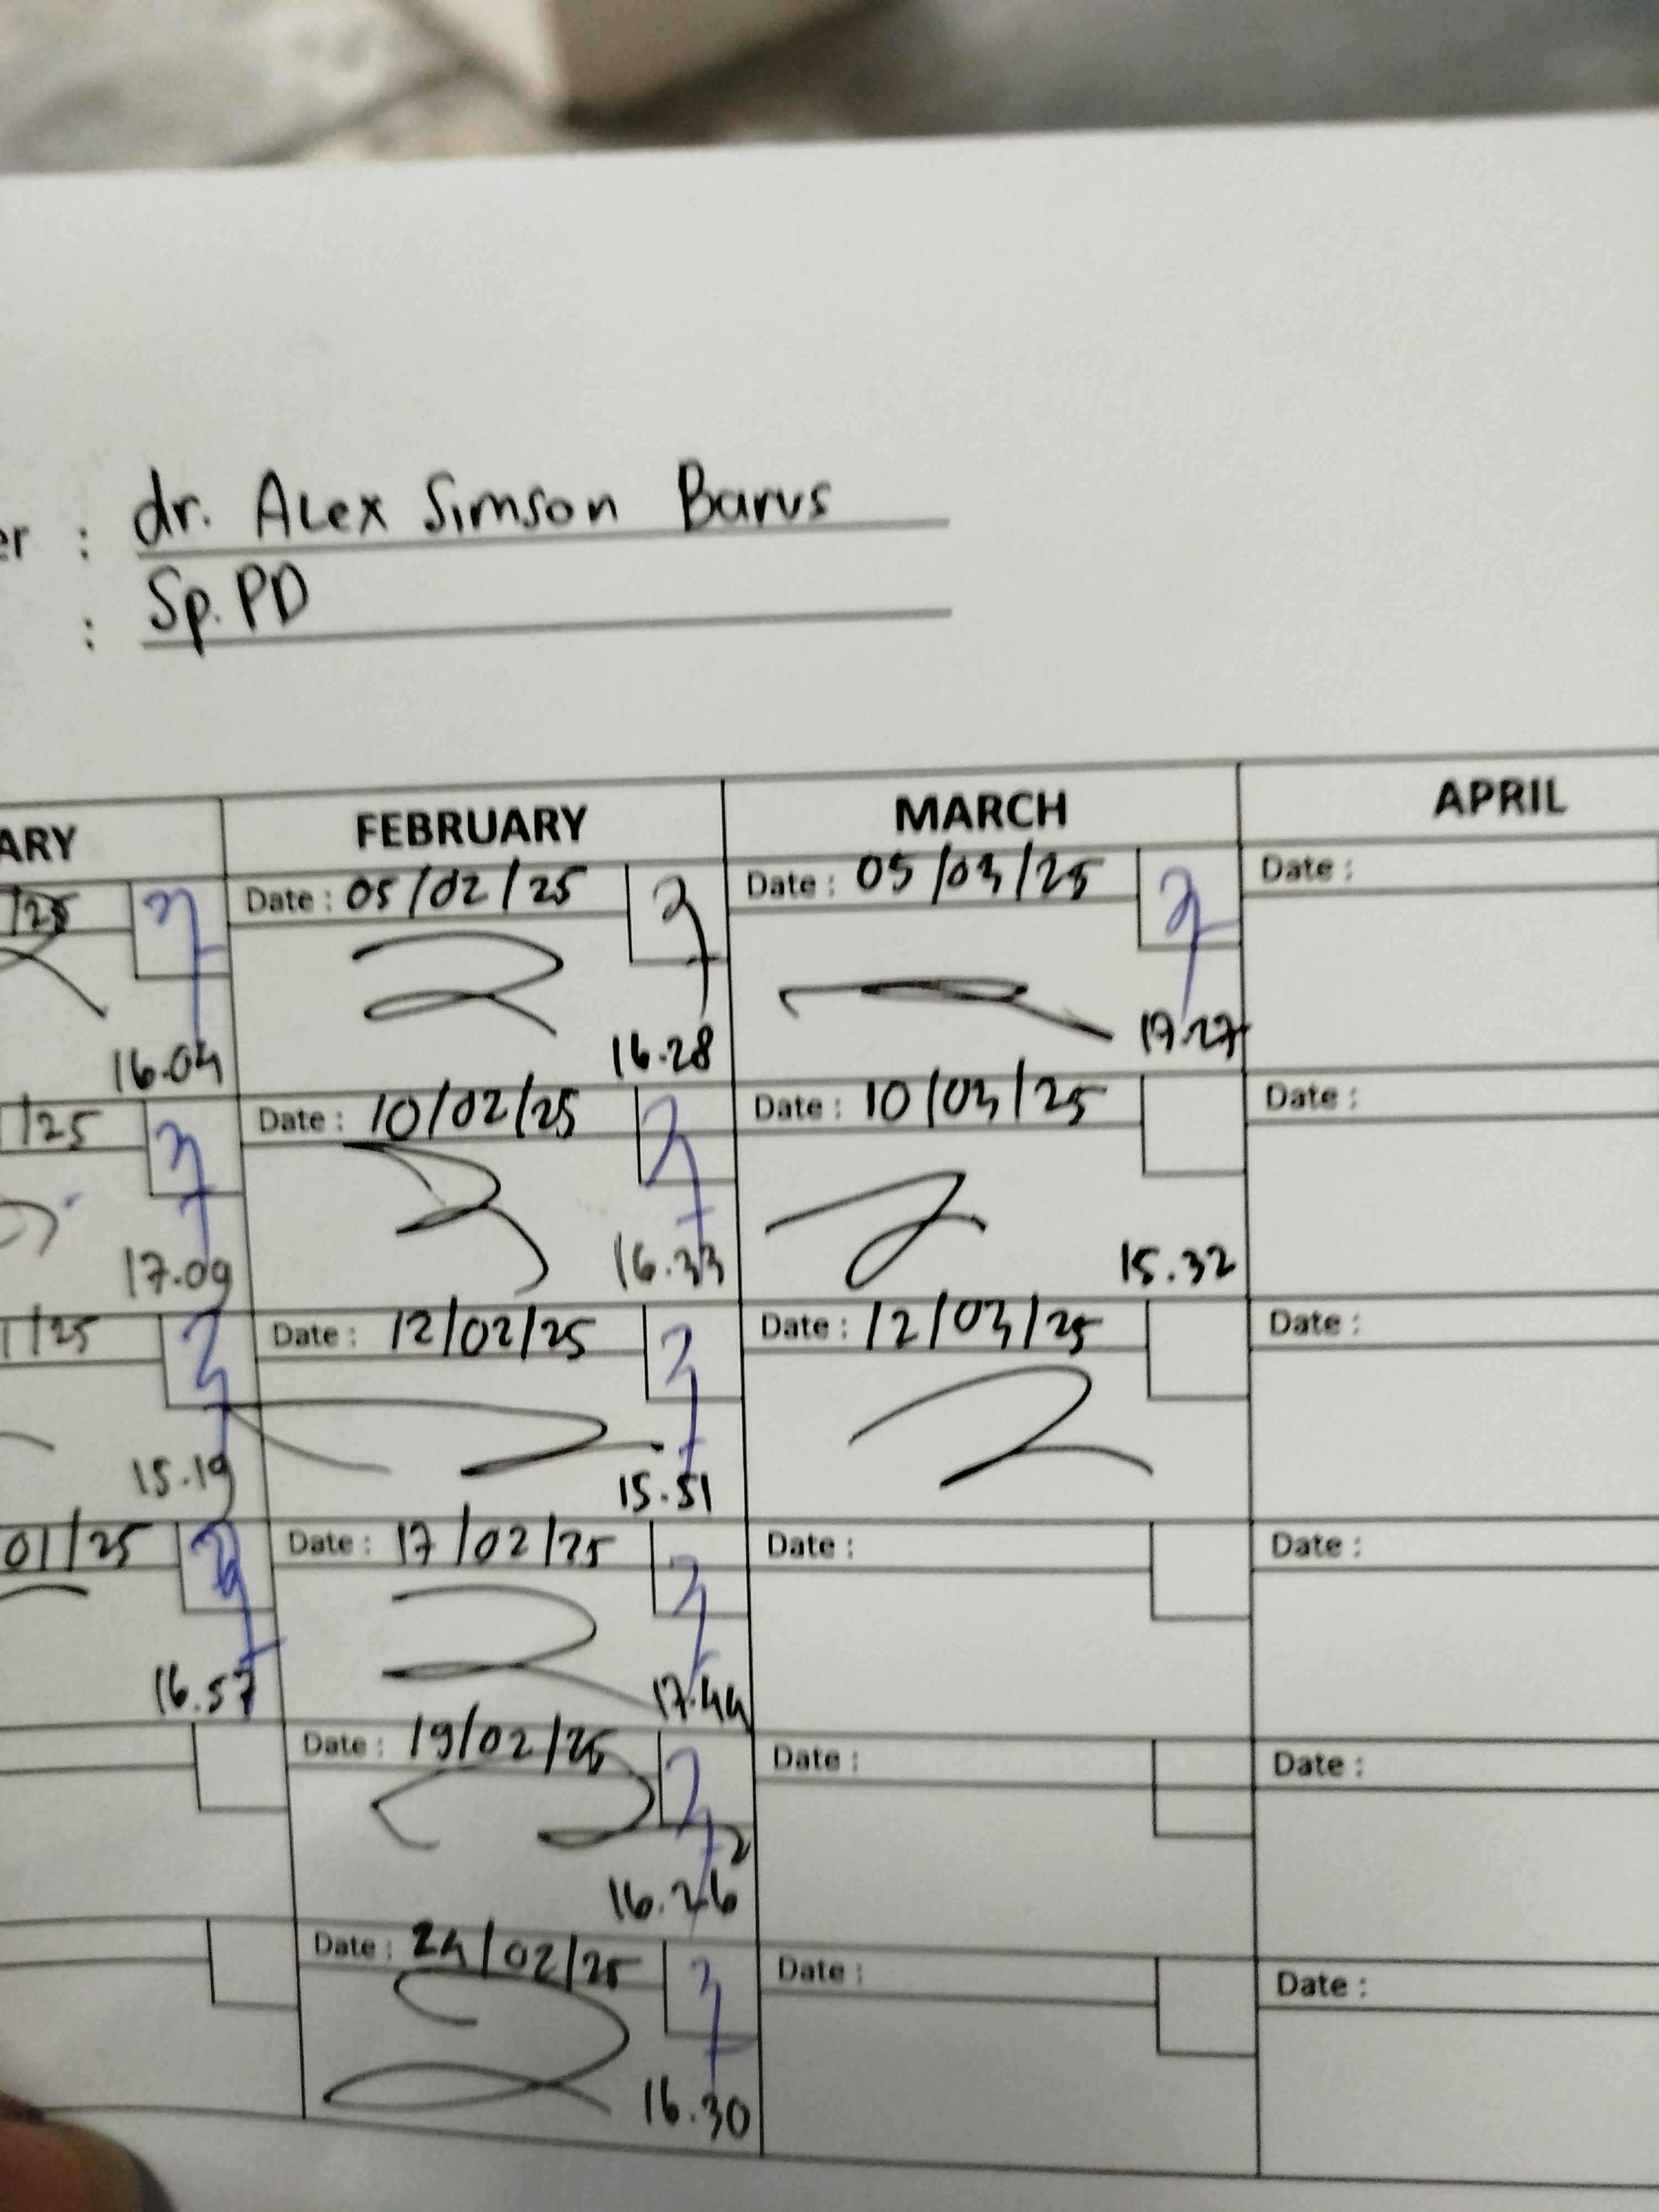 er : dr. Alex Simson Barus
: Sp. PD
ARY FEBRUARY MARCH APRIL
/25 Date : 05/02/25 Date : 05/03/25 Date :
16.04 16.28 17.27
/25 Date : 10/02/25 Date : 10/03/25 Date :
17.09 16.33 15.32
1/25 Date : 12/02/25 Date : 12/03/25 Date :
15.19 15.51
01/25 Date : 17/02/25 Date : Date :
16.57 17.44
Date : 19/02/25 Date : Date :
16.26
Date : 24/02/25 Date : Date :
16.30